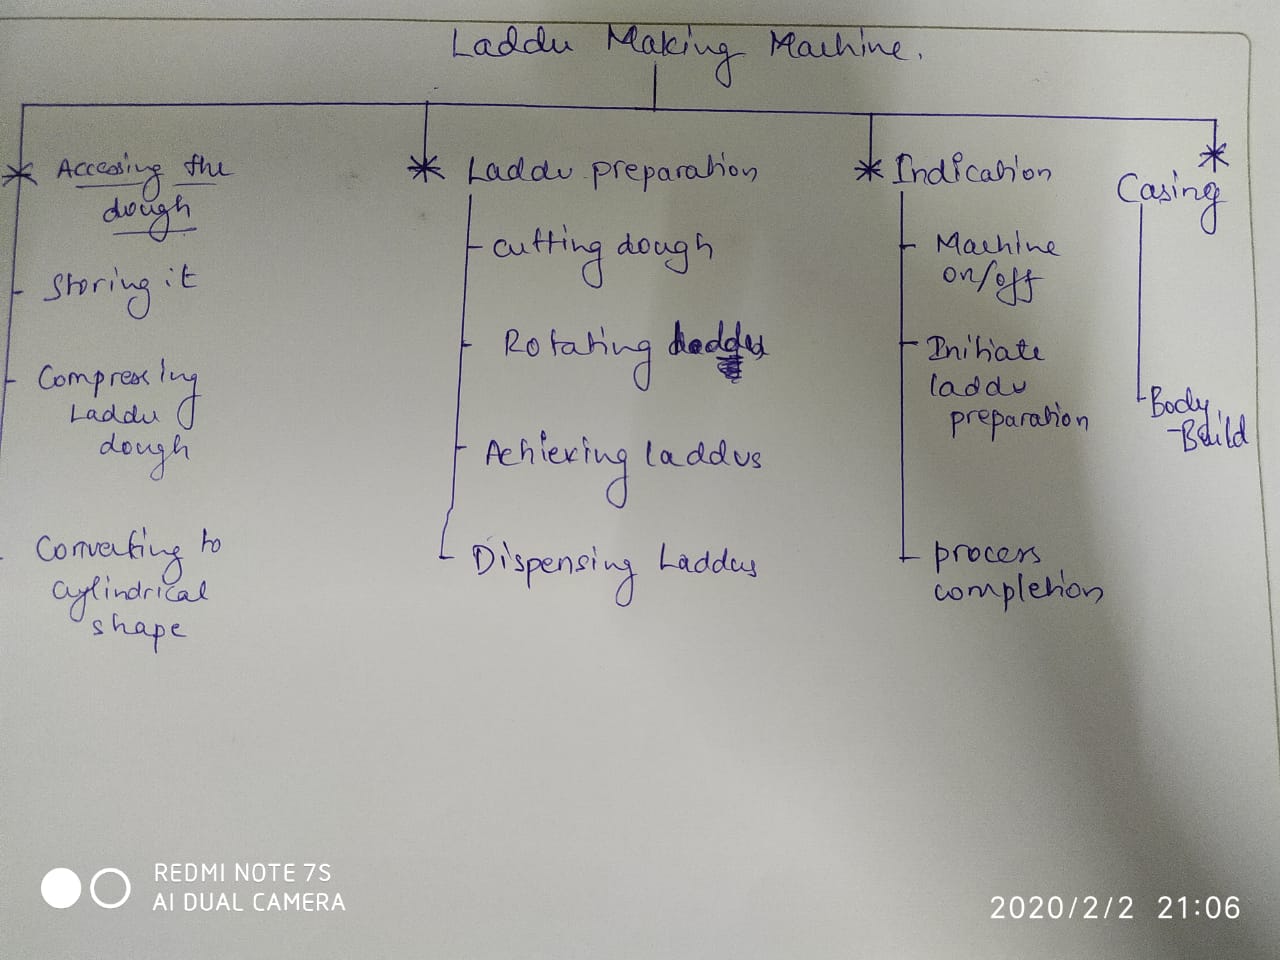 Laddu Making Machine.
* Accessing the
dough
Storing it
Compressing
Laddu
dough
Converting to
cylindrical
shape
* Laddu preparation
cutting dough
Rotating laddu
Achieving laddus
Dispensing Laddus
* Indication
Machine
on/off
Initiate
laddu
preparation
process
completion
*
Casing
Body
-Build
REDMI NOTE 7S
AI DUAL CAMERA
2020/2/2 21:06